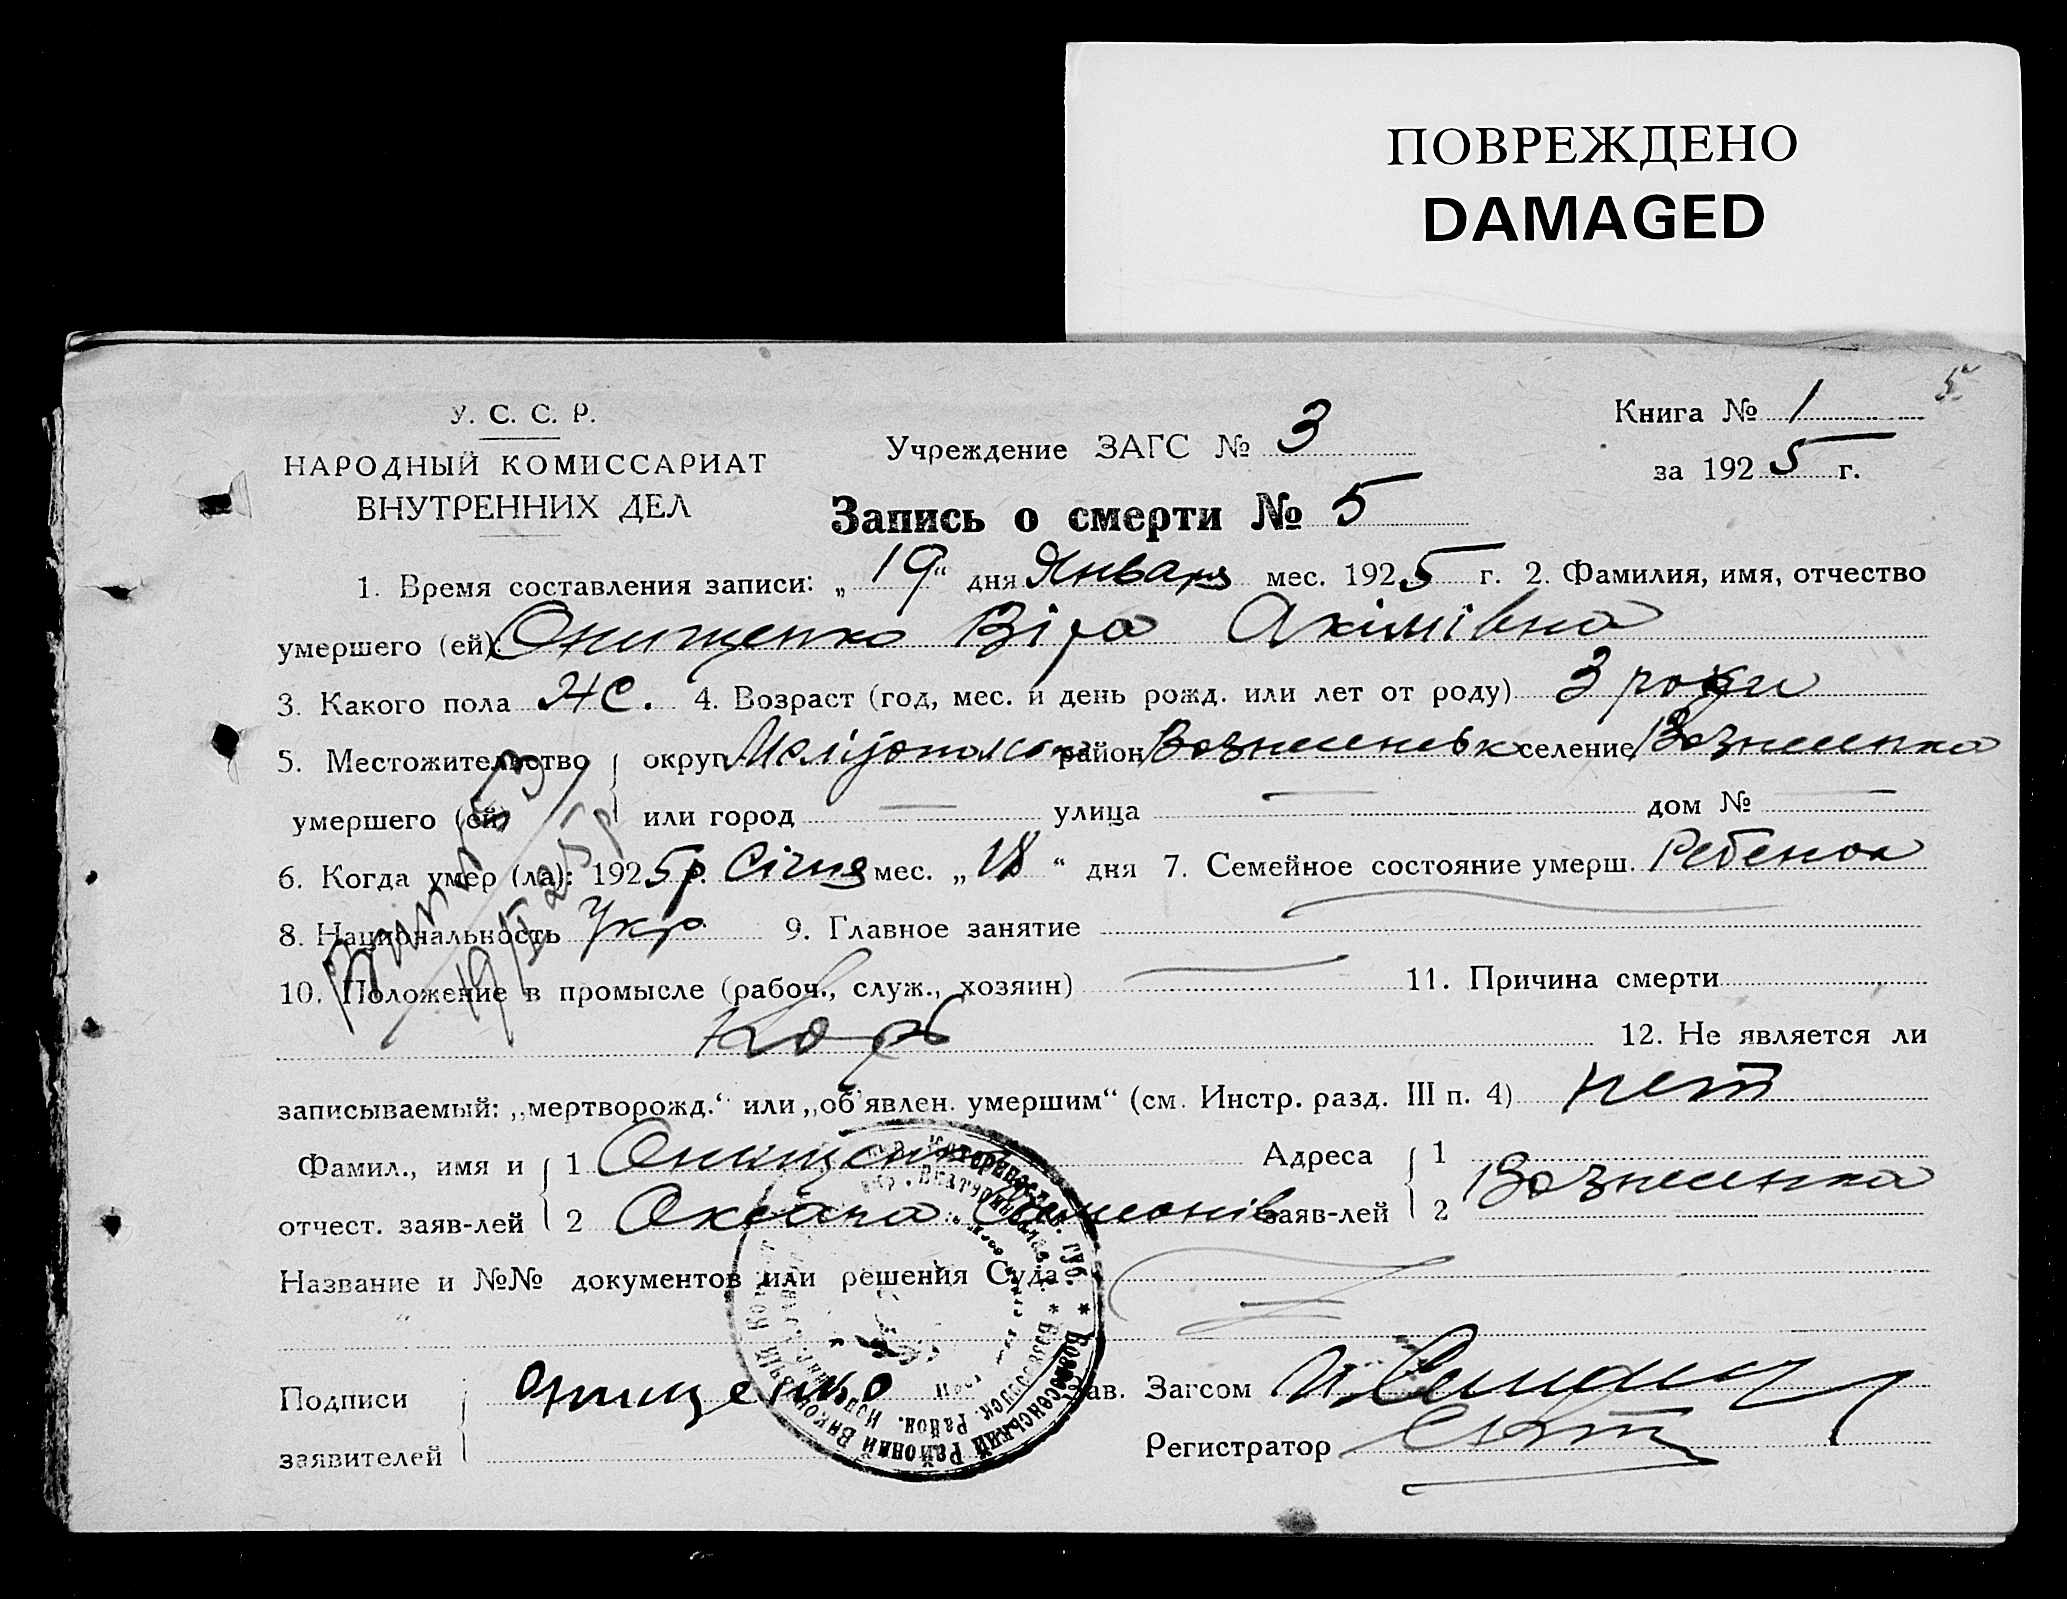 ПОВРЕЖДЕНО
DAMAGED
5
У. С. С. Р.
НАРОДНЫЙ КОМИССАРИАТ
ВНУТРЕННИХ ДЕЛ
Учреждение ЗАГС № 3
Книга № 1
за 1925 г.
Запись о смерти № 5
1. Время составления записи: „19“ дня Января мес. 1925 г. 2. Фамилия, имя, отчество
умершего (ей): Онищенко Віра Акімівна
3. Какого пола Ж. 4. Возраст (год, мес. и день рожд. или лет от роду) 3 роки
5. Местожительство округ район селение Вознесенка
умершего (ей) или город — улица — дом № —
6. Когда умер (ла): 1925 р. Січня мес. „18“ дня 7. Семейное состояние умерш. Ребенок
8. Национальность Укр 9. Главное занятие —
10. Положение в промысле (рабоч., служ., хозяин) — 11. Причина смерти
Корь
12. Не является ли
записываемый: „мертворожд.“ или „об'явлен. умершим“ (см. Инстр. разд. III п. 4) нет
Фамил., имя и 1 Онищенко Адреса 1
отчест. заяв-лей 2 Оксана заяв-лей 2 Вознесенка
Название и №№ документов или решения Суда
Подписи Онищенко Зав. Загсом
заявителей Регистратор